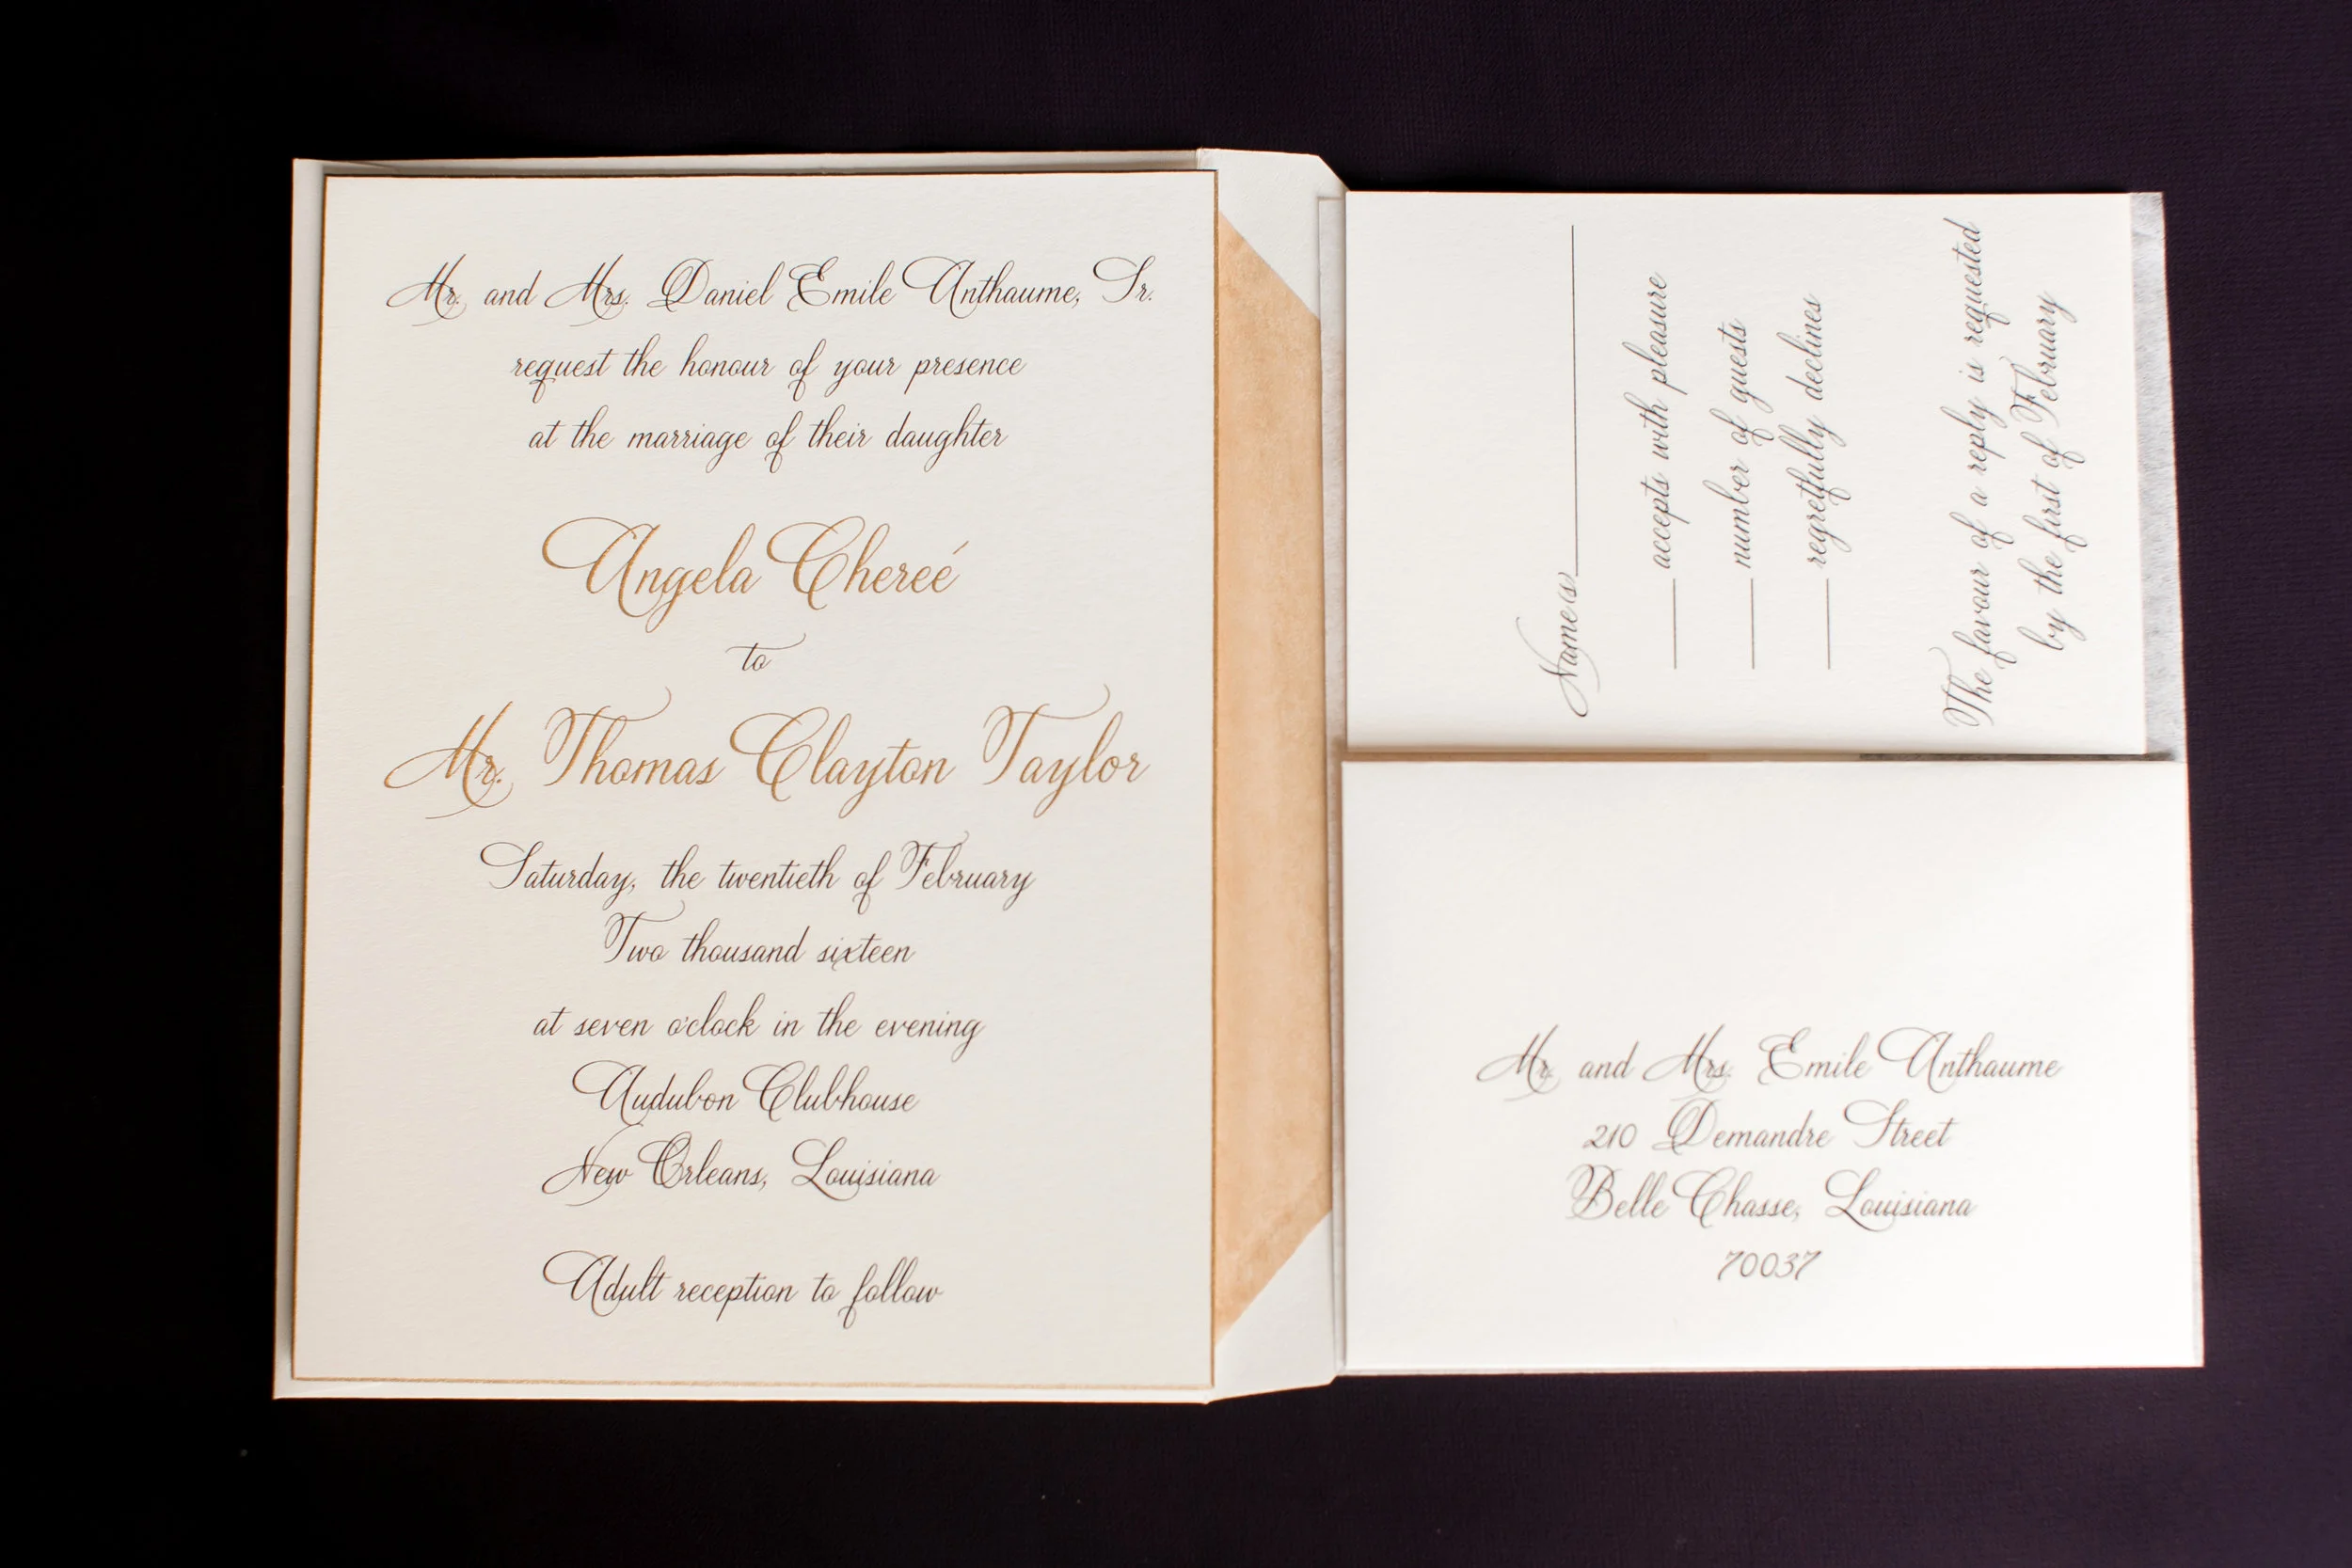 Mr. and Mrs. Daniel Emile Anthaume, Sr.
request the honour of your presence
at the marriage of their daughter
Angela Chereé
to
Mr. Thomas Clayton Taylor
Saturday, the twentieth of February
Two thousand sixteen
at seven o'clock in the evening
Audubon Clubhouse
New Orleans, Louisiana
Adult reception to follow
Name(s)
accepts with pleasure
number of guests
regretfully declines
The favour of a reply is requested
by the first of February
Mr. and Mrs. Emile Anthaume
210 Demandre Street
Belle Chasse, Louisiana
70037